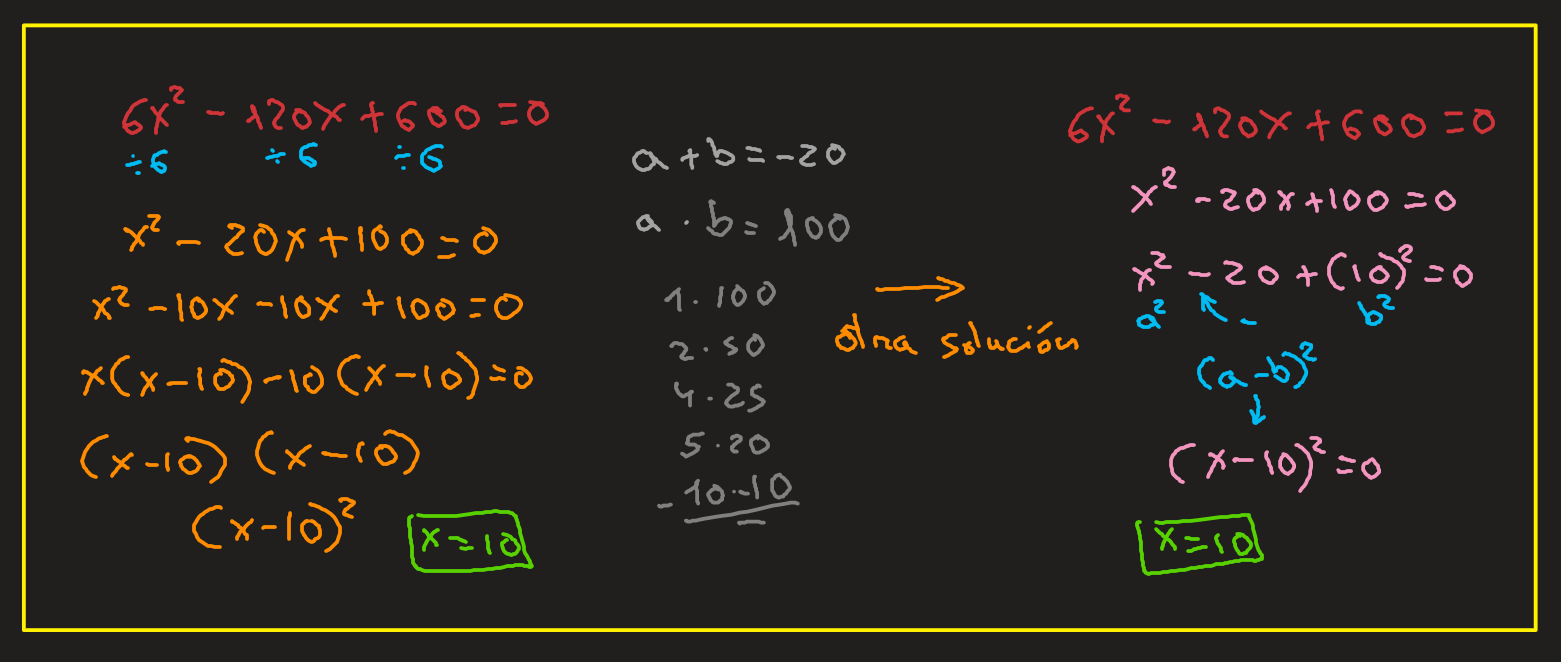 6x² - 120x + 600 = 0
÷6 ÷6 ÷6
x² - 20x + 100 = 0
x² - 10x - 10x + 100 = 0
x(x-10) - 10(x-10) = 0
(x-10) (x-10)
(x-10)²
x = 10
a + b = -20
a · b = 100
1 · 100
2 · 50
4 · 25
5 · 20
-10 · -10
otra solución
6x² - 120x + 600 = 0
x² - 20x + 100 = 0
x² - 20 + (10)² = 0
a² - b²
(a-b)²
(x-10)² = 0
x = 10